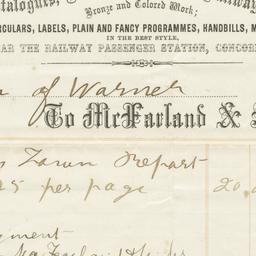 atalogues,
Bronze and Colored Work;
RCULARS, LABELS, PLAIN AND FANCY PROGRAMMES, HANDBILLS, M
IN THE BEST STYLE,
AR THE RAILWAY PASSENGER STATION, CONCOR
of Warner
To McFarland &
Town Report
25 per page 20.
yment
McFarland & Jenks